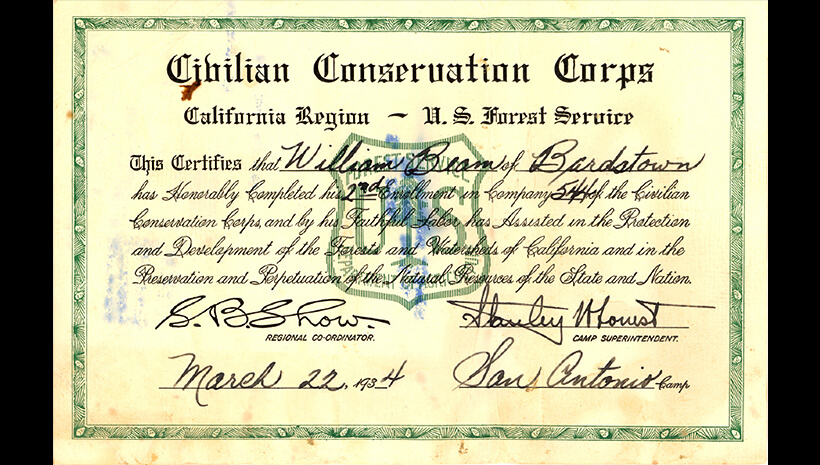 Civilian Conservation Corps
California Region ~ U.S. Forest Service
This Certifies that William Beam of Bardstown
has Honorably Completed his 2nd Enrollment in Company 544 of the Civilian
Conservation Corps, and by his Faithful Labor, has Assisted in the Protection
and Development of the Forests and Watersheds of California and in the
Preservation and Perpetuation of the Natural Resources of the State and Nation.
S. B. Show. Stanley
REGIONAL CO-ORDINATOR. CAMP SUPERINTENDENT.
March 22, 1934 San Antonio Camp
FOREST SERVICE
U S
DEPARTMENT OF AGRICULTURE